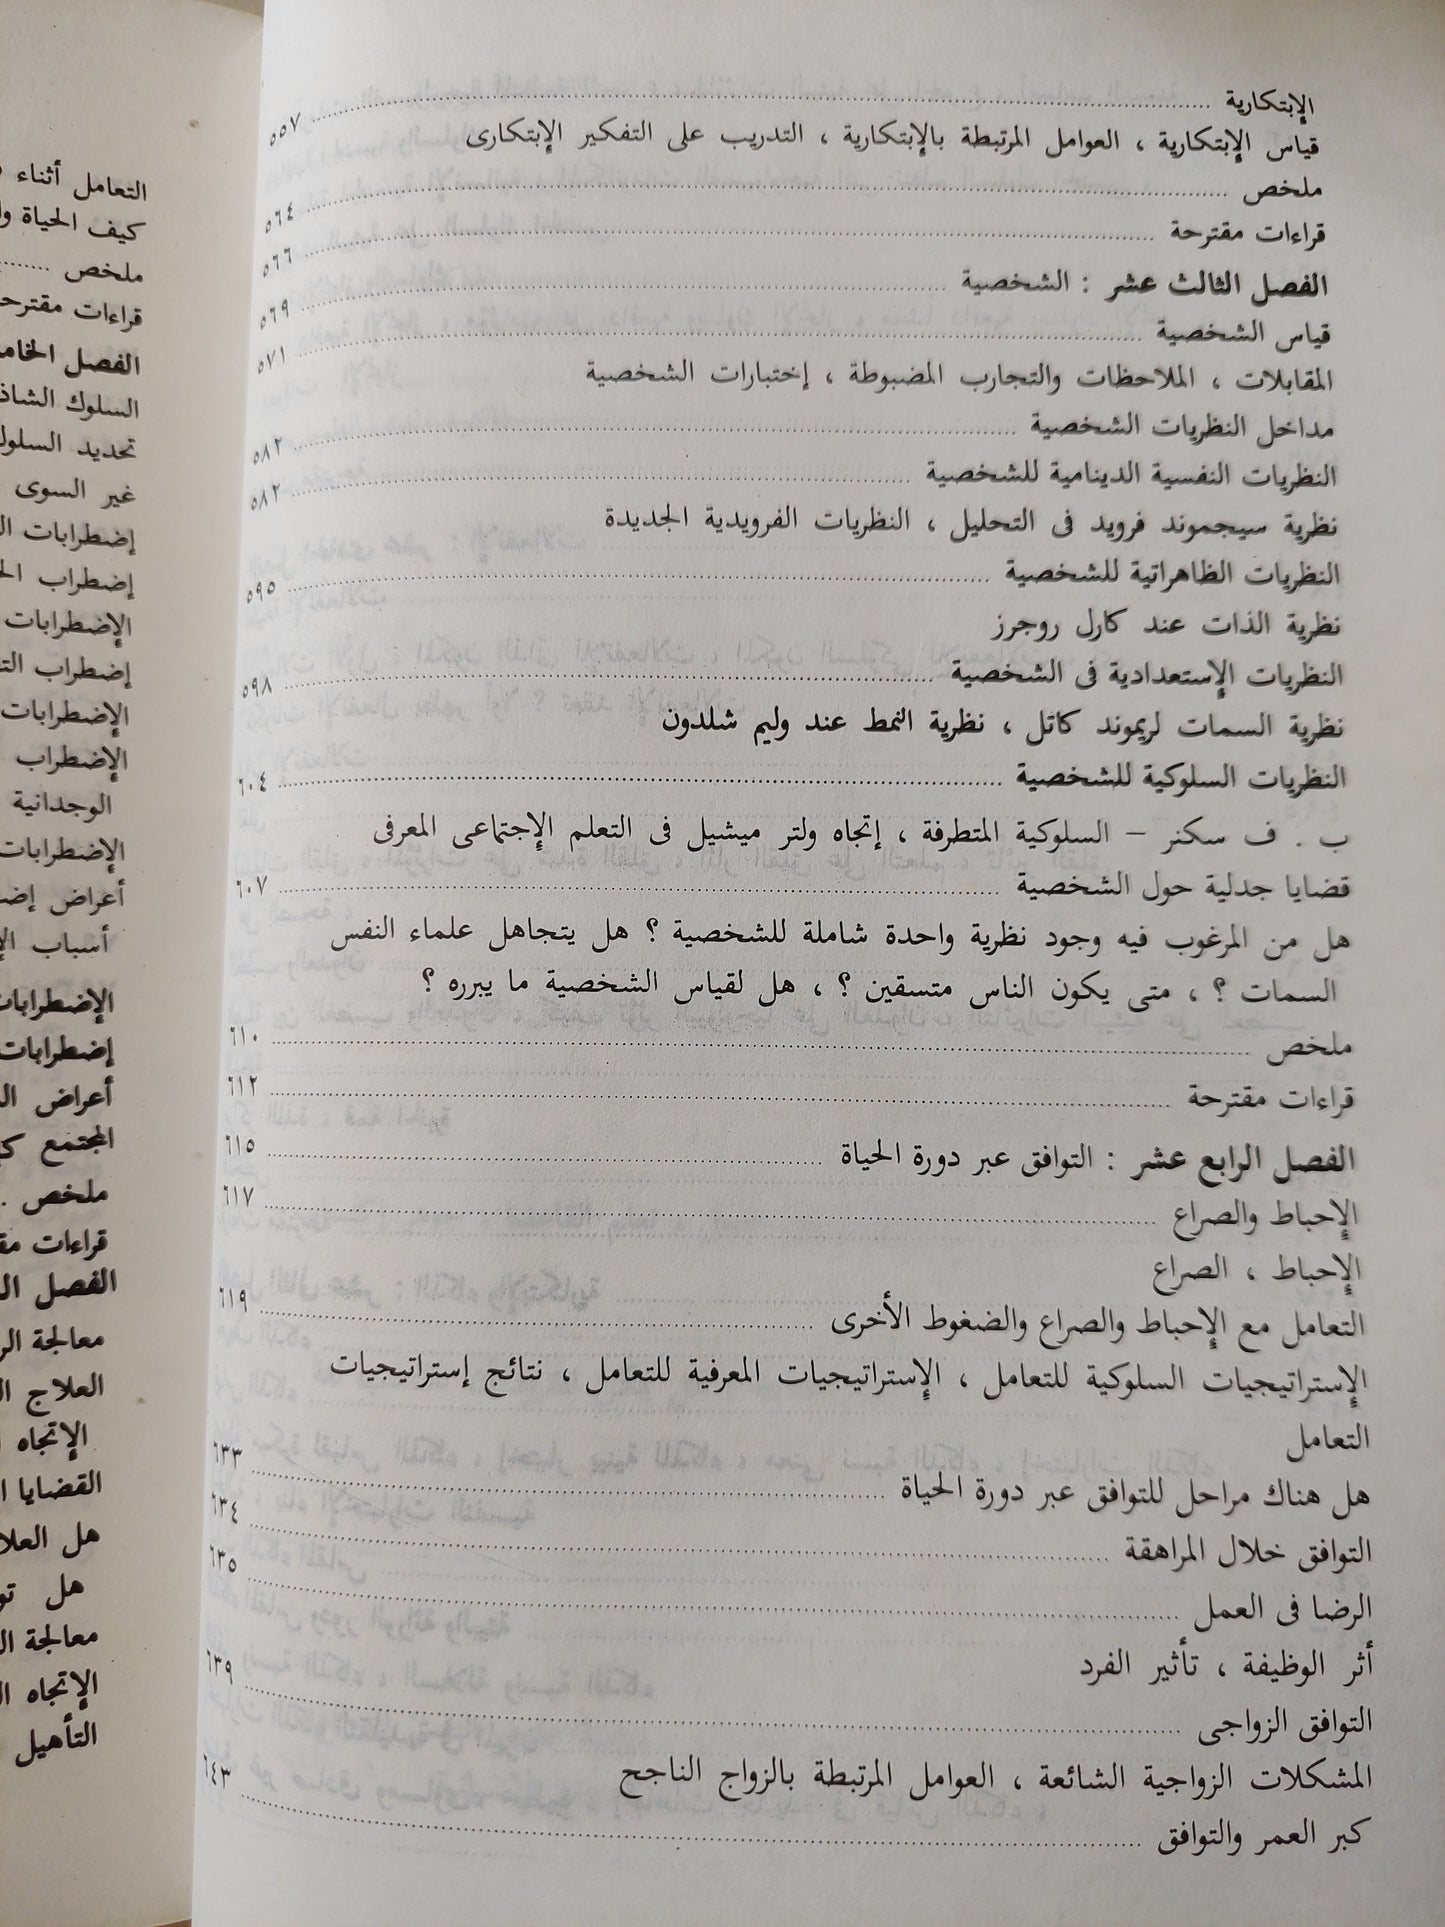 الإبتكارية ........ ٥٥٧
قياس الإبتكارية ، العوامل المرتبطة بالإبتكارية ، التدريب على التفكير الإبتكارى
ملخص ........ ٥٦٤
قراءات مقترحة ........ ٥٦٦
الفصل الثالث عشر : الشخصية ........ ٥٦٩
قياس الشخصية ........ ٥٧١
المقابلات ، الملاحظات والتجارب المضبوطة ، إختبارات الشخصية
مداخل النظريات الشخصية ........ ٥٨٢
النظريات النفسية الدينامية للشخصية ........ ٥٨٢
نظرية سيجموند فرويد فى التحليل ، النظريات الفرويدية الجديدة
النظريات الظاهراتية للشخصية ........ ٥٩٥
نظرية الذات عند كارل روجرز
النظريات الإستعدادية فى الشخصية ........ ٥٩٨
نظرية السمات لريموند كاتل ، نظرية النمط عند وليم شلدون
النظريات السلوكية للشخصية ........ ٦٠٤
ب . ف سكنر – السلوكية المتطرفة ، إتجاه ولتر ميشيل فى التعلم الإجتماعى المعرفى
قضايا جدلية حول الشخصية ........ ٦٠٧
هل من المرغوب فيه وجود نظرية واحدة شاملة للشخصية ؟ هل يتجاهل علماء النفس
السمات ؟ ، متى يكون الناس متسقين ؟ ، هل لقياس الشخصية ما يبرره ؟
ملخص ........ ٦١٠
قراءات مقترحة ........ ٦١٢
الفصل الرابع عشر : التوافق عبر دورة الحياة ........ ٦١٥
الإحباط والصراع ........ ٦١٧
الإحباط ، الصراع
التعامل مع الإحباط والصراع والضغوط الأخرى ........ ٦١٩
الإستراتيجيات السلوكية للتعامل ، الإستراتيجيات المعرفية للتعامل ، نتائج إستراتيجيات
التعامل
هل هناك مراحل للتوافق عبر دورة الحياة ........ ٦٣٣
التوافق خلال المراهقة ........ ٦٣٤
الرضا فى العمل ........ ٦٣٥
أثر الوظيفة ، تأثير الفرد
التوافق الزواجى ........ ٦٣٩
المشكلات الزواجية الشائعة ، العوامل المرتبطة بالزواج الناجح
كبر العمر والتوافق ........ ٦٤٣
التعامل أثناء
كيف الحياة
ملخص ........
قراءات
الفصل
السلوك
تحديد
غير السوى
إضطرابات
إضطراب
الإضطرابات
إضطراب
الإضطرابات
الإضطراب
الوجدانية
الإضطرابات
أعراض
أسباب
الإضطرابات
إضطرابات
أعراض
المجتمع
ملخص .
قراءات
الفصل
معالجة
العلاج
الإتجاه
القضايا
هل
هل
معالجة
الإتجاه
التأهيل